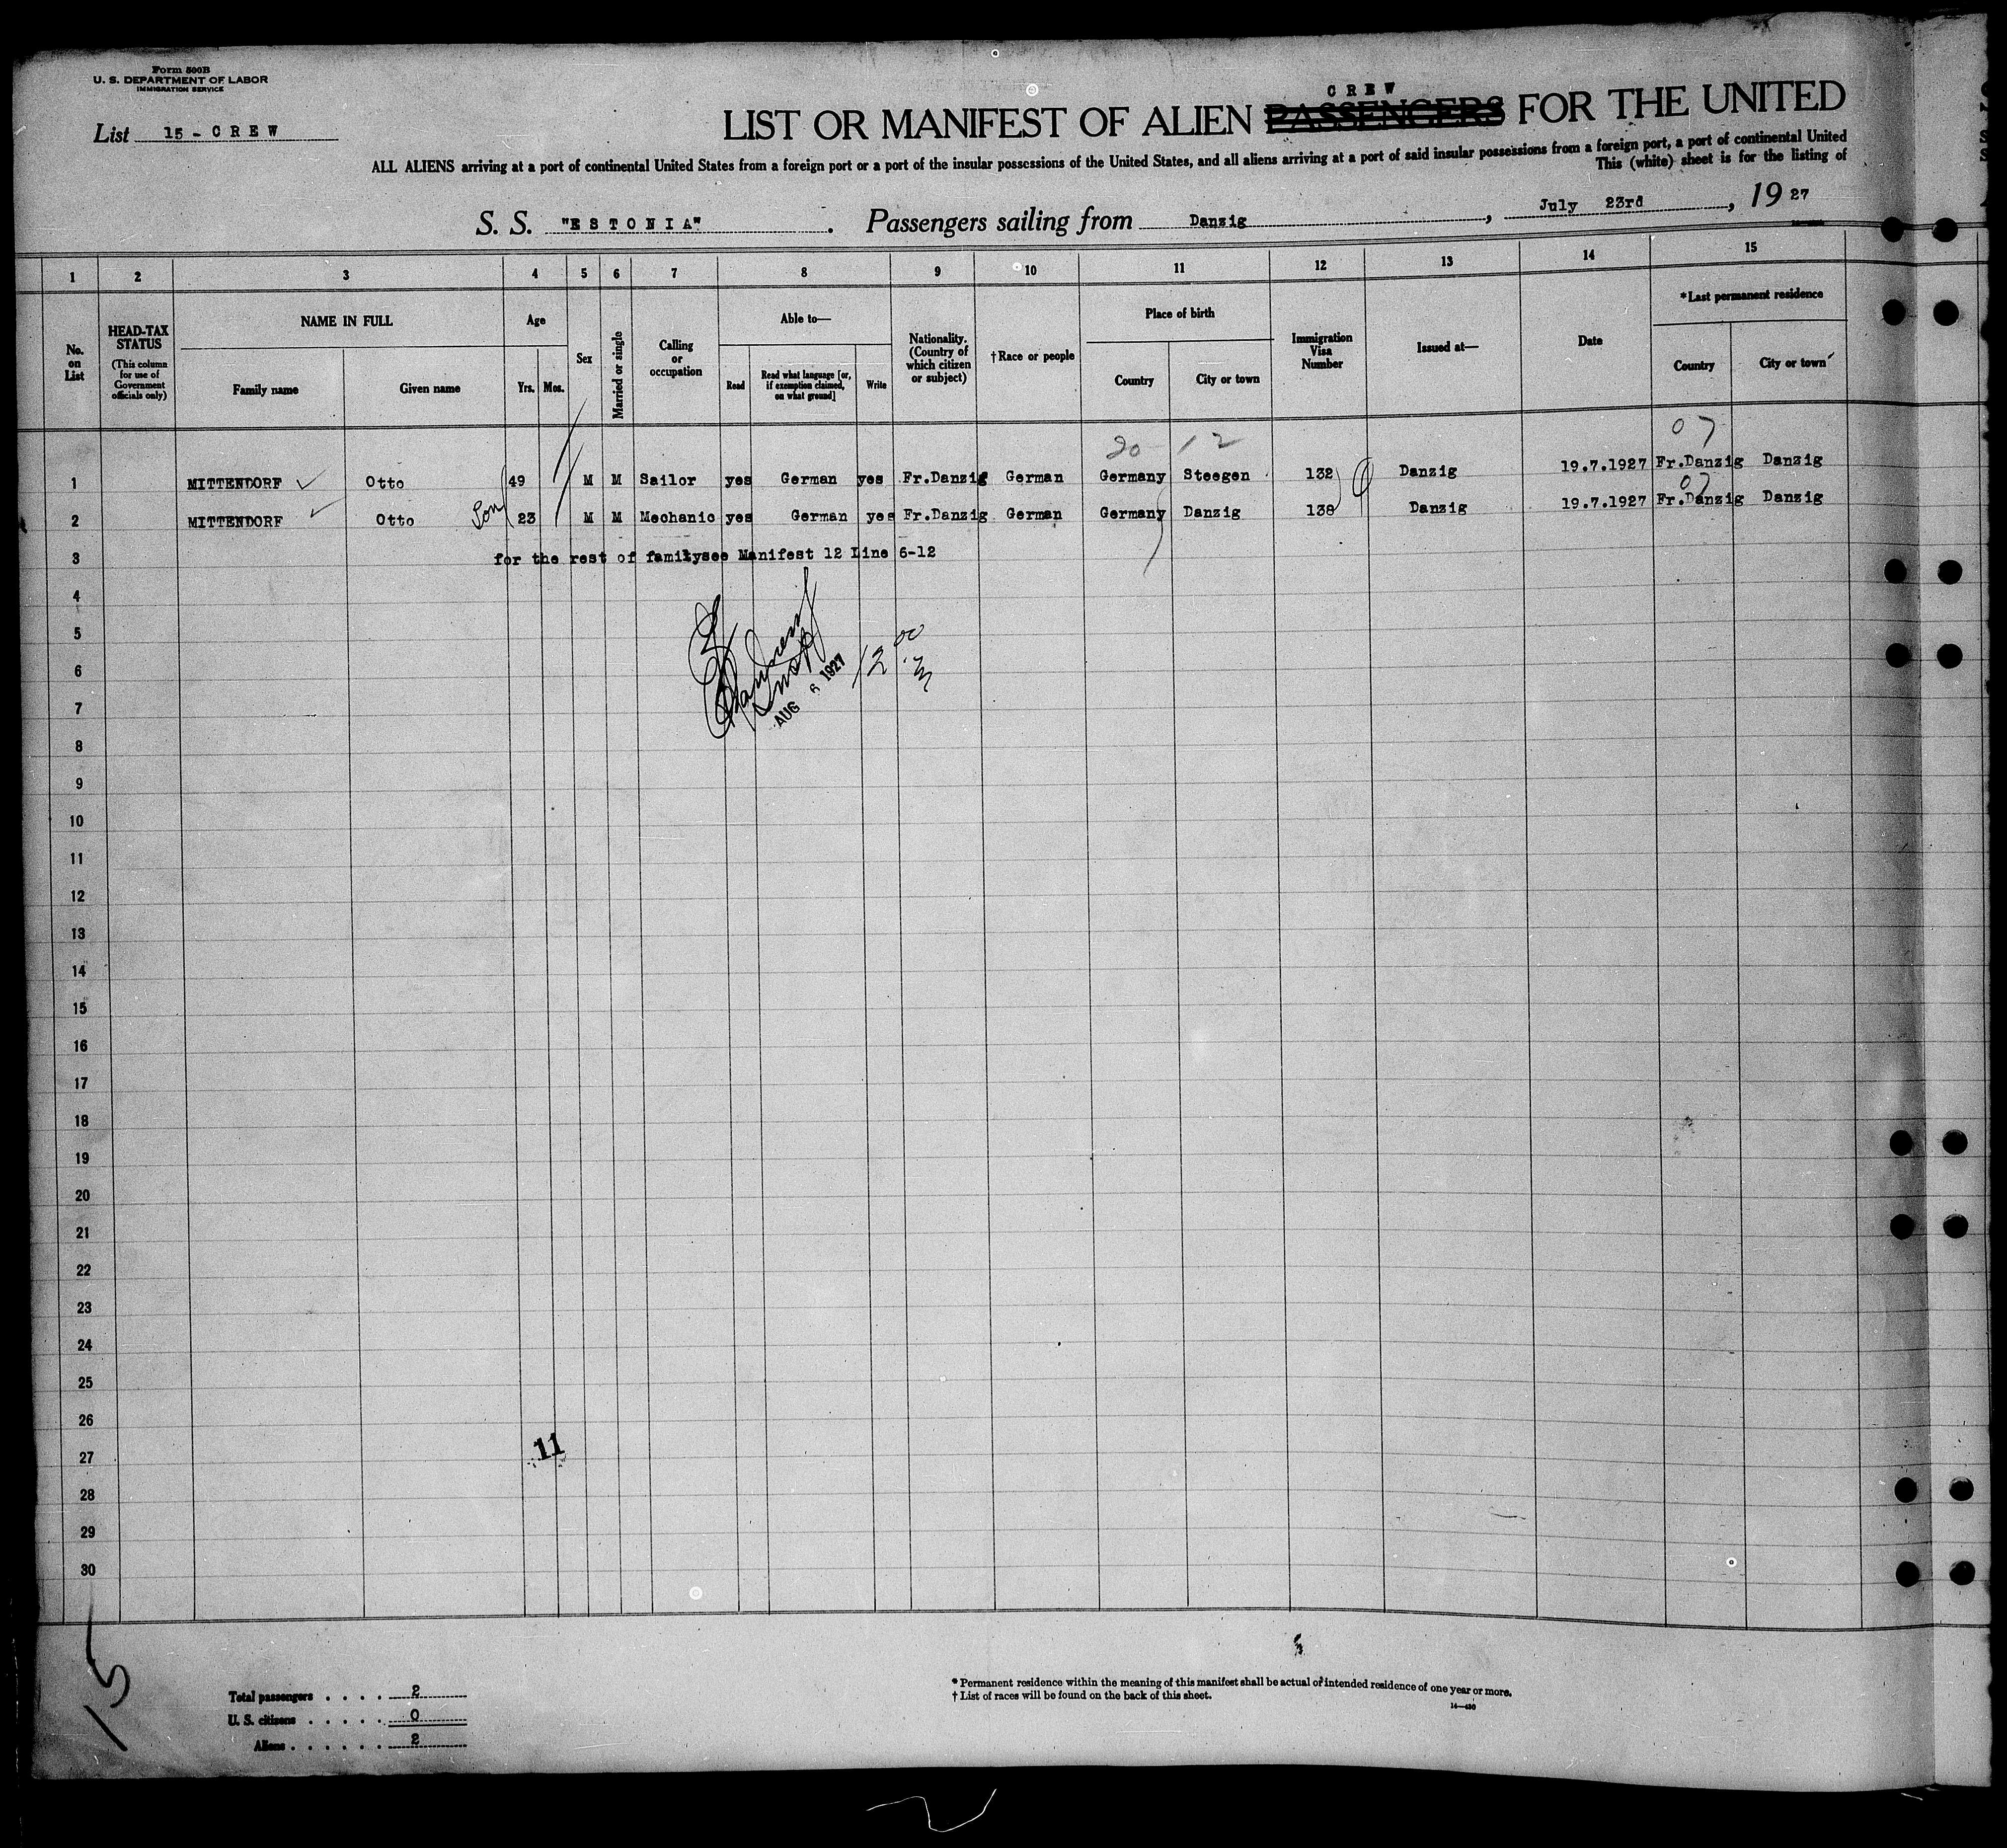 Form 500B
U. S. DEPARTMENT OF LABOR
IMMIGRATION SERVICE
List 15 - CREW
CREW
LIST OR MANIFEST OF ALIEN PASSENGERS FOR THE UNITED
ALL ALIENS arriving at a port of continental United States from a foreign port or a port of the insular possessions of the United States, and all aliens arriving at a port of said insular possessions from a foreign port, a port of continental United
This (white) sheet is for the listing of
S. S. "ESTONIA" . Passengers sailing from Danzig , July 23rd , 19 27
1 2 3 4 5 6 7 8 9 10 11 12 13 14 15
No. on List
HEAD-TAX STATUS
(This column for use of Government officials only)
NAME IN FULL
Family name Given name
Age
Yrs. Mos.
Sex
Married or single
Calling or occupation
Able to—
Read
Read what language [or, if exemption claimed, on what ground]
Write
Nationality. (Country of which citizen or subject)
†Race or people
Place of birth
Country City or town
Immigration Visa Number
Issued at—
Date
*Last permanent residence
Country City or town
20 12 07
1 MITTENDORF Otto 49 M M Sailor yes German yes Fr.Danzig German Germany Steegen 132 Danzig 19.7.1927 Fr.Danzig Danzig
07
2 MITTENDORF Otto Son 23 M M Mechanic yes German yes Fr.Danzig German Germany Danzig 138 Danzig 19.7.1927 Fr.Danzig Danzig
3 for the rest of familysee Manifest 12 Line 6-12
4
5
6
7
AUG 6 1927
12 00
8
9
10
11
12
13
14
15
16
17
18
19
20
21
22
23
24
25
26
27
11
28
29
30
15
Total passengers . . . . 2
U. S. citizens . . . . . 0
Aliens . . . . . . 2
* Permanent residence within the meaning of this manifest shall be actual or intended residence of one year or more.
† List of races will be found on the back of this sheet.
14—430